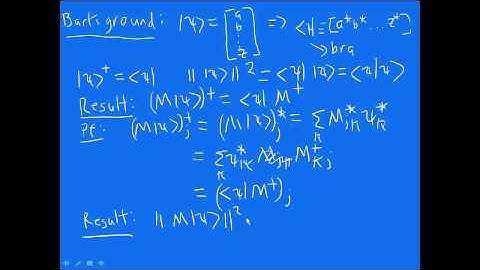 Background: |ψ> = [a b ⋮ z] => <ψ| ≡ [a* b* ... z*]
→ bra
|ψ>† = <ψ| || |ψ> ||² = <ψ| |ψ> = <ψ|ψ>
Result: (M|ψ>)† = <ψ| M†
Pf: (M|ψ>)†ⱼ = (M|ψ>)ⱼ* = Σₖ Mⱼₖ* ψₖ*
= Σₖ ψₖ* M†ₖⱼ
= (<ψ|M†)ⱼ
Result: || M|ψ> ||²